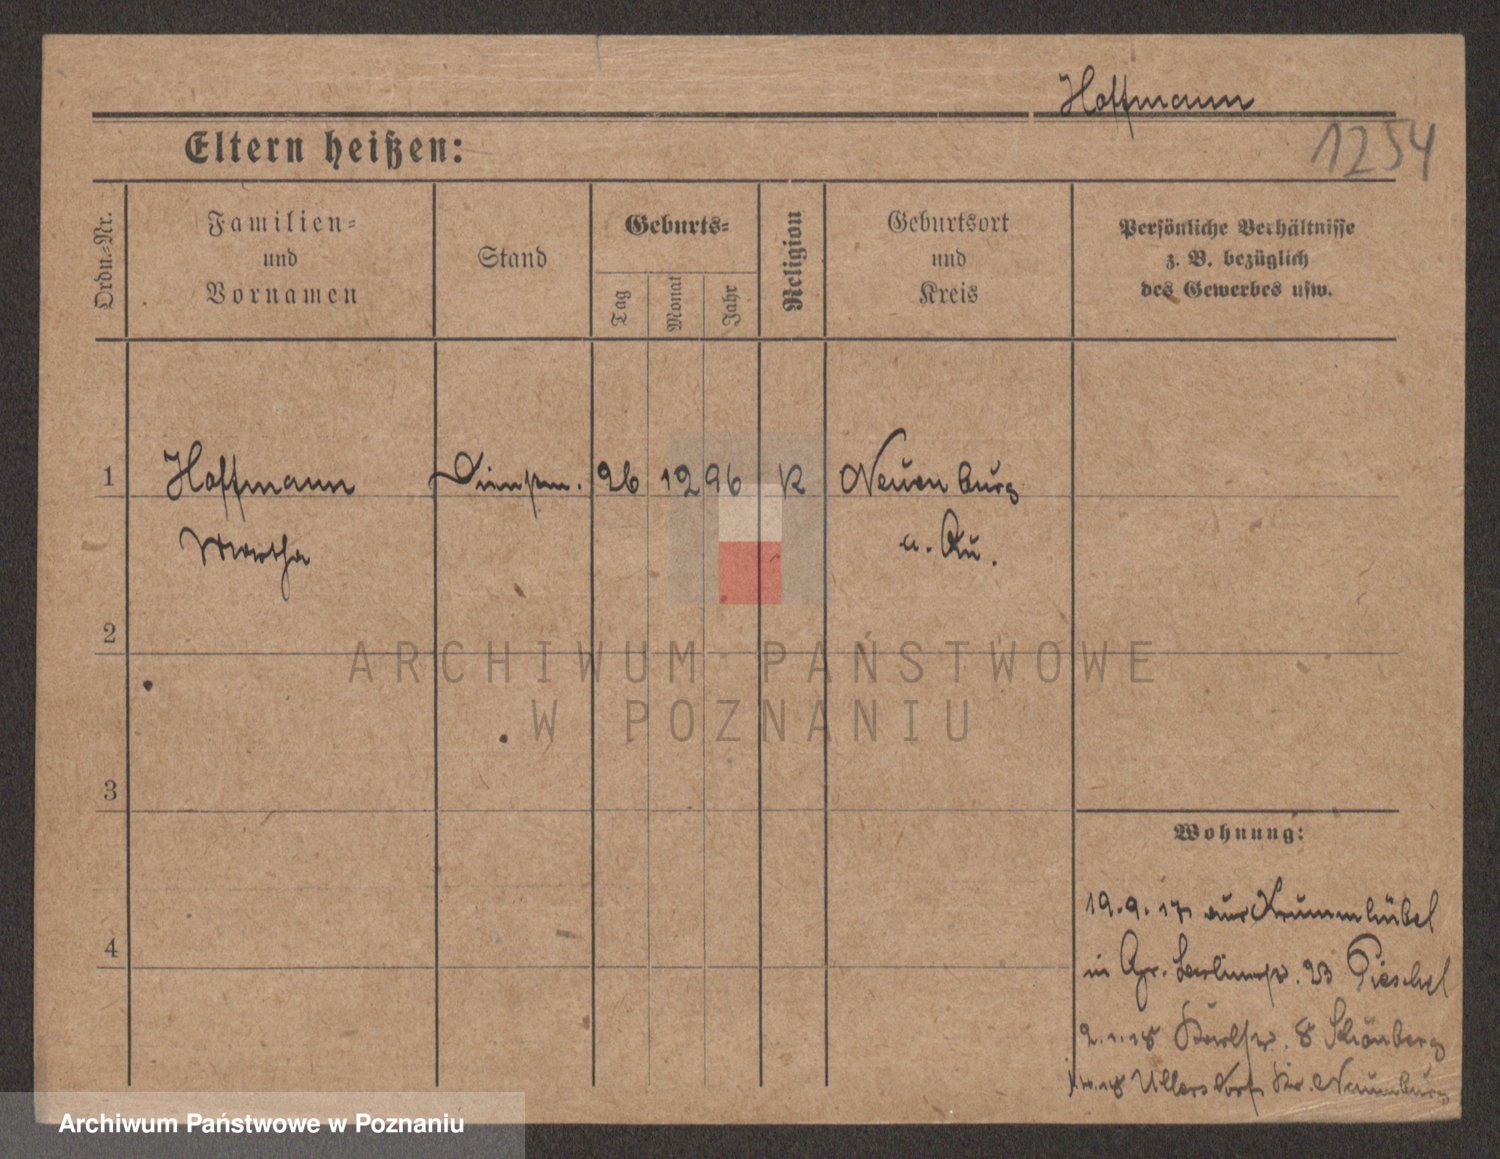 Hoffmann
1254
Eltern heißen:
Ordn.-Nr.
Familien-
und
Vornamen
Stand
Geburts-
Tag
Monat
Jahr
Religion
Geburtsort
und
Kreis
Persönliche Verhältnisse
z. B. bezüglich
des Gewerbes usw.
1 Hoffmann 26 12 96 K Neuenburg
Martha a. Qu.
2
ARCHIWUM PAŃSTWOWE
W POZNANIU
3
Wohnung:
19.9.17 aus Krummhübel
4
in Gr. Berlinerstr. 23 Pieschel
2.1.18 Karlstr. 8 Schönberg
18 Ullersdorf Kr. Naumburg
Archiwum Państwowe w Poznaniu